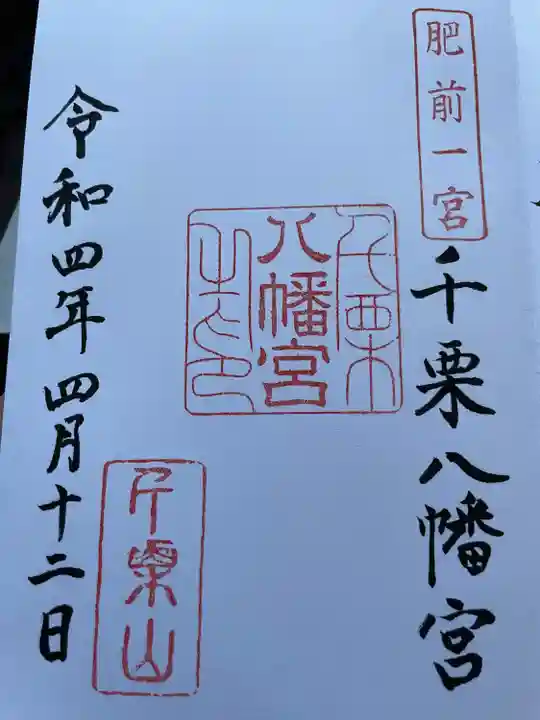 肥前一宮
千栗八幡宮
千栗
八幡宮
之印
千栗山
令和四年四月十二日